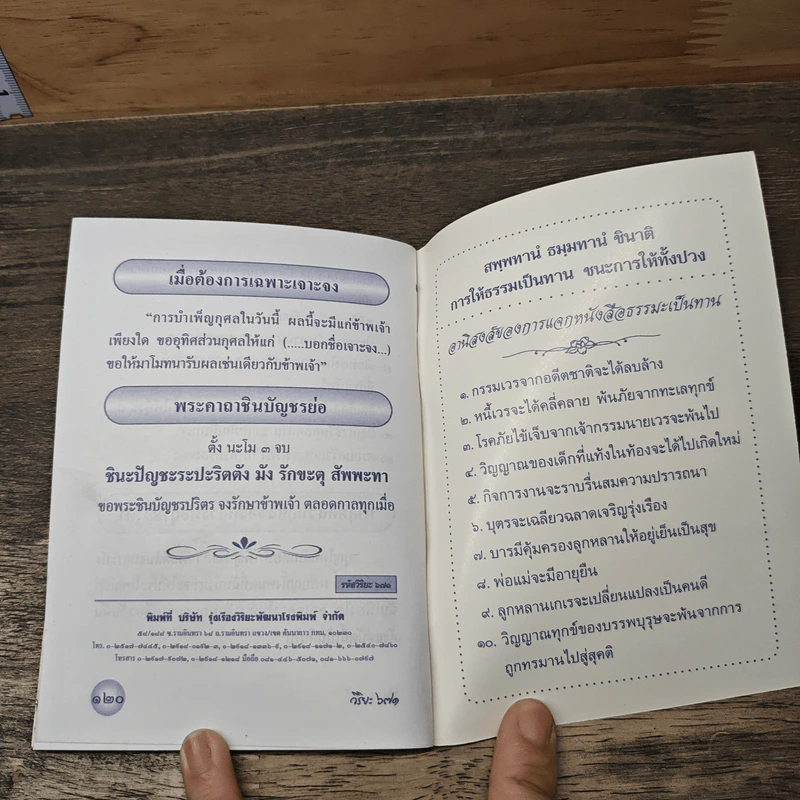 เมื่อต้องการเฉพาะเจาะจง
“การบำเพ็ญกุศลในวันนี้ ผลนี้จะมีแก่ข้าพเจ้า
เพียงใด ขออุทิศส่วนกุศลให้แก่ (.....บอกชื่อเจาะจง...)
ขอให้มาโมทนารับผลเช่นเดียวกับข้าพเจ้า”
พระคาถาชินบัญชรย่อ
ตั้ง นะโม ๓ จบ
ชินะปัญชะระปะริตตัง มัง รักขะตุ สัพพะทา
ขอพระชินบัญชรปริตร จงรักษาข้าพเจ้า ตลอดกาลทุกเมื่อ
รหัสวิริยะ ๖๗๑
พิมพ์ที่ บริษัท รุ่งเรืองวิริยะพัฒนาโรงพิมพ์ จำกัด
๑๒๐
วิริยะ ๖๗๑
สพฺพทานํ ธมฺมทานํ ชินาติ
การให้ธรรมเป็นทาน ชนะการให้ทั้งปวง
อานิสงส์ของการแจกหนังสือธรรมะเป็นทาน
๑. กรรมเวรจากอดีตชาติจะได้ลบล้าง
๒. หนี้เวรจะได้คลี่คลาย พ้นภัยจากทะเลทุกข์
๓. โรคภัยไข้เจ็บจากเจ้ากรรมนายเวรจะพ้นไป
๔. วิญญาณของเด็กที่แท้งในท้องจะได้ไปเกิดใหม่
๕. กิจการงานจะราบรื่นสมความปรารถนา
๖. บุตรจะเฉลียวฉลาดเจริญรุ่งเรือง
๗. บารมีคุ้มครองลูกหลานให้อยู่เย็นเป็นสุข
๘. พ่อแม่จะมีอายุยืน
๙. ลูกหลานเกเรจะเปลี่ยนแปลงเป็นคนดี
๑๐. วิญญาณทุกข์ของบรรพบุรุษจะพ้นจากการ
ถูกทรมานไปสู่สุคติ